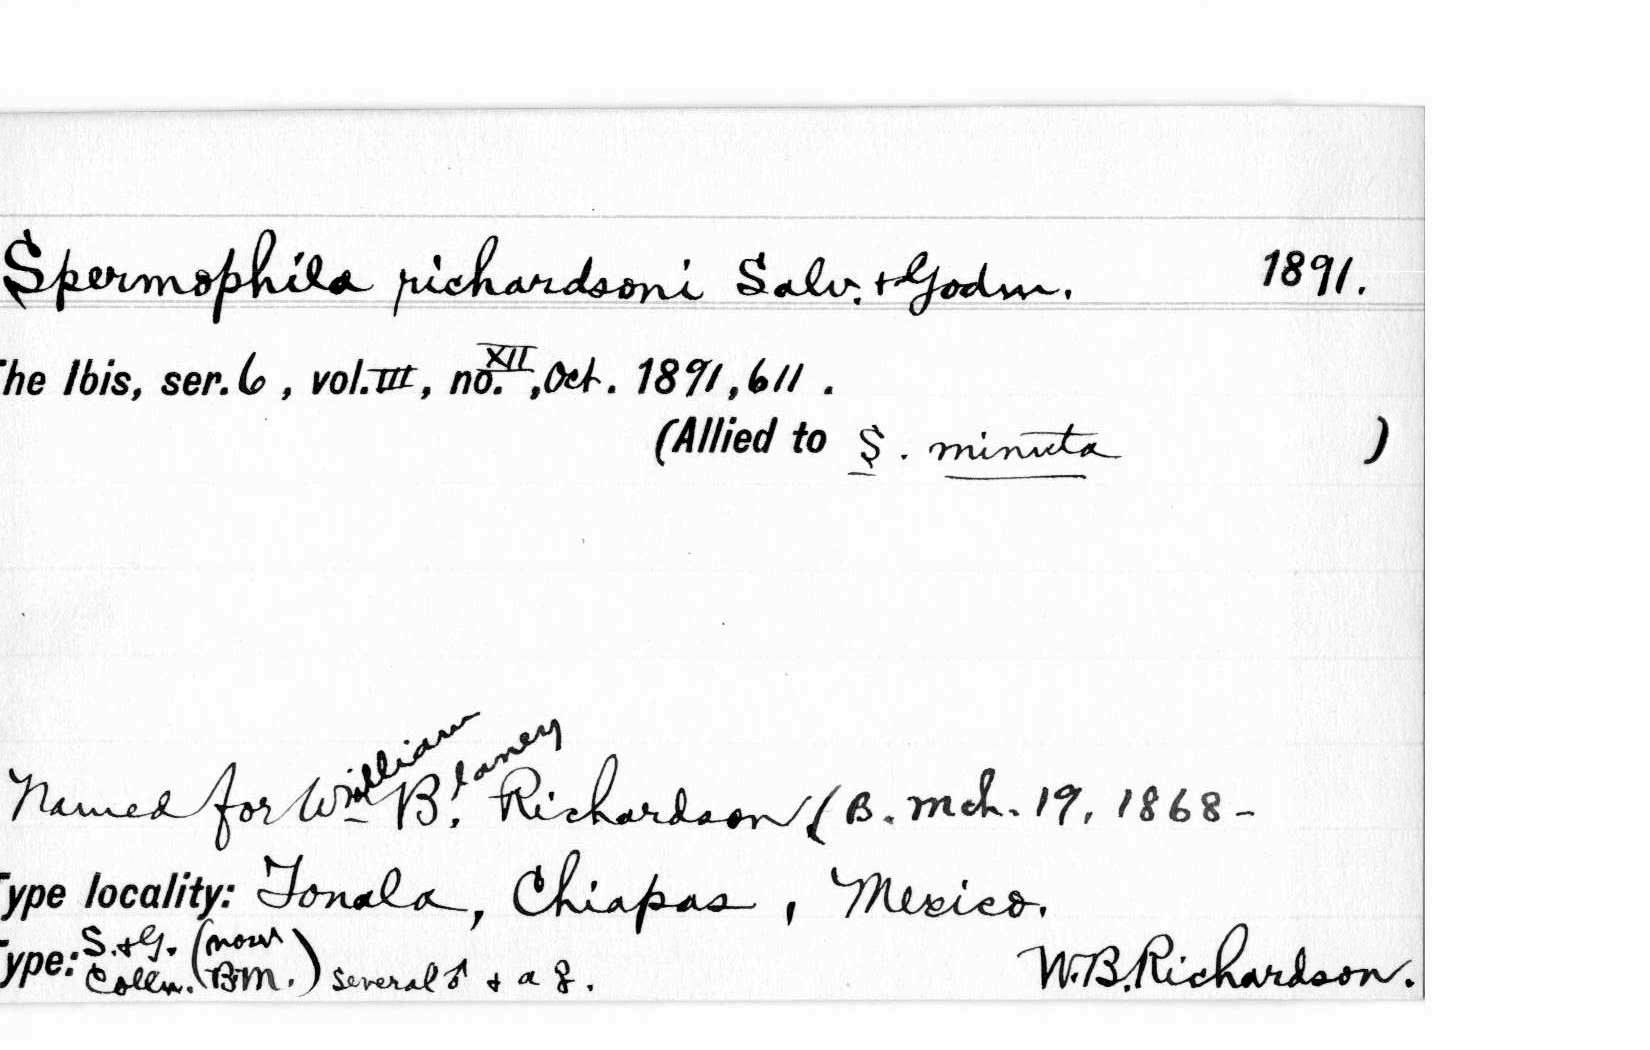 Spermophila richardsoni Salv. + Godm. 1891.
The Ibis, ser. 6, vol. III, no. XII, Oct. 1891, 611.
(Allied to S. minuta )
Named for William Blaney Richardson (B. Mch. 19, 1868 -
Type locality: Tonala, Chiapas, Mexico.
Type: S. + G. Colln. (now B.M.) several ♂ + a ♀. W.B. Richardson.